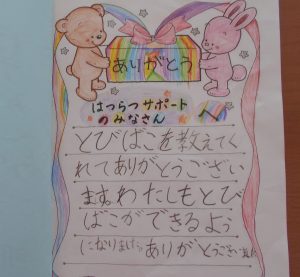 ありがとう
はつらつサポート
のみなさん へ
とびばこを教えてく
れてありがとうござい
ます。わたしもとび
ばこができるよう
になりました。ありがとうございました